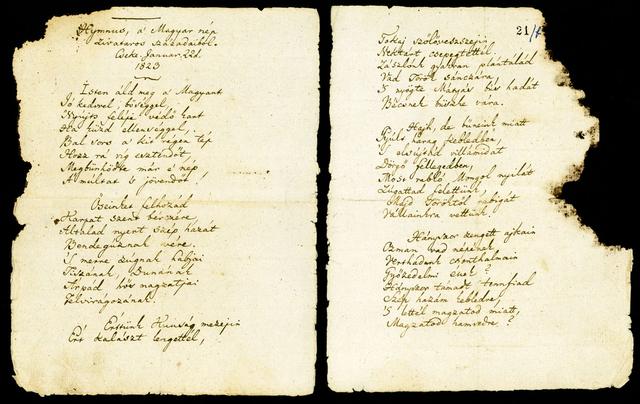 Hymnus, a' Magyar nép
zivataros századaiból.
Cseke. Januar. 22d.
1823
Isten áld meg a Magyart
Jó kedvvel, bőséggel,
Nyújts feléje védő kart
Ha küzd ellenséggel;
Bal sors a' kit régen tép
Hozz rá víg esztendőt,
Megbünhödte már e' nép
A' multat 's jövendőt!
Őseinket felhozád
Kárpát szent bérczére,
Általad nyert szép hazát
Bendegúznak vére.
'S merre zúgnak habjai
Tiszának, Dunának
Árpád hős magzatjai
Felvirágozának.
Értünk Kunság mezein
Ért kalászt lengettél,
21/4
Tokaj szőlővesszein
Nektárt csepegtettél.
Zászlónk gyakran plántálád
Vad Török sánczára,
'S nyögte Mátyás bús hadát
Bécsnek büszke vára.
Hajh, de bűneink miatt
Gyúlt harag kebledben,
's elsújtád villámidat
Dörgő fellegedben,
Most rabló Mongol nyilát
Zúgattad felettünk,
Majd Töröktől rabigát
Vállainkra vettünk.
Hányszor zengett ajkain
Ozman vad népének
Vert hadunk csonthalmain
Győzedelmi ének?
Hányszor támadt tenfiad
Szép hazám kebledre,
'S lettél magzatod miatt,
Magzatod hamvedre?